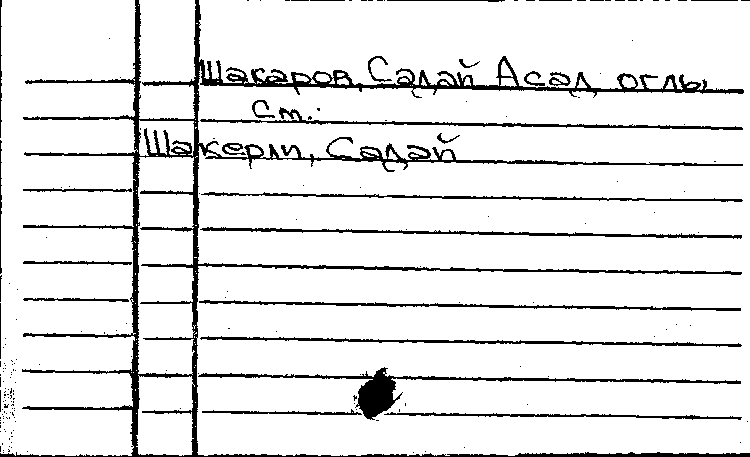 Шакаров, Садай Асад оглы
см.:
Шакерли, Садай